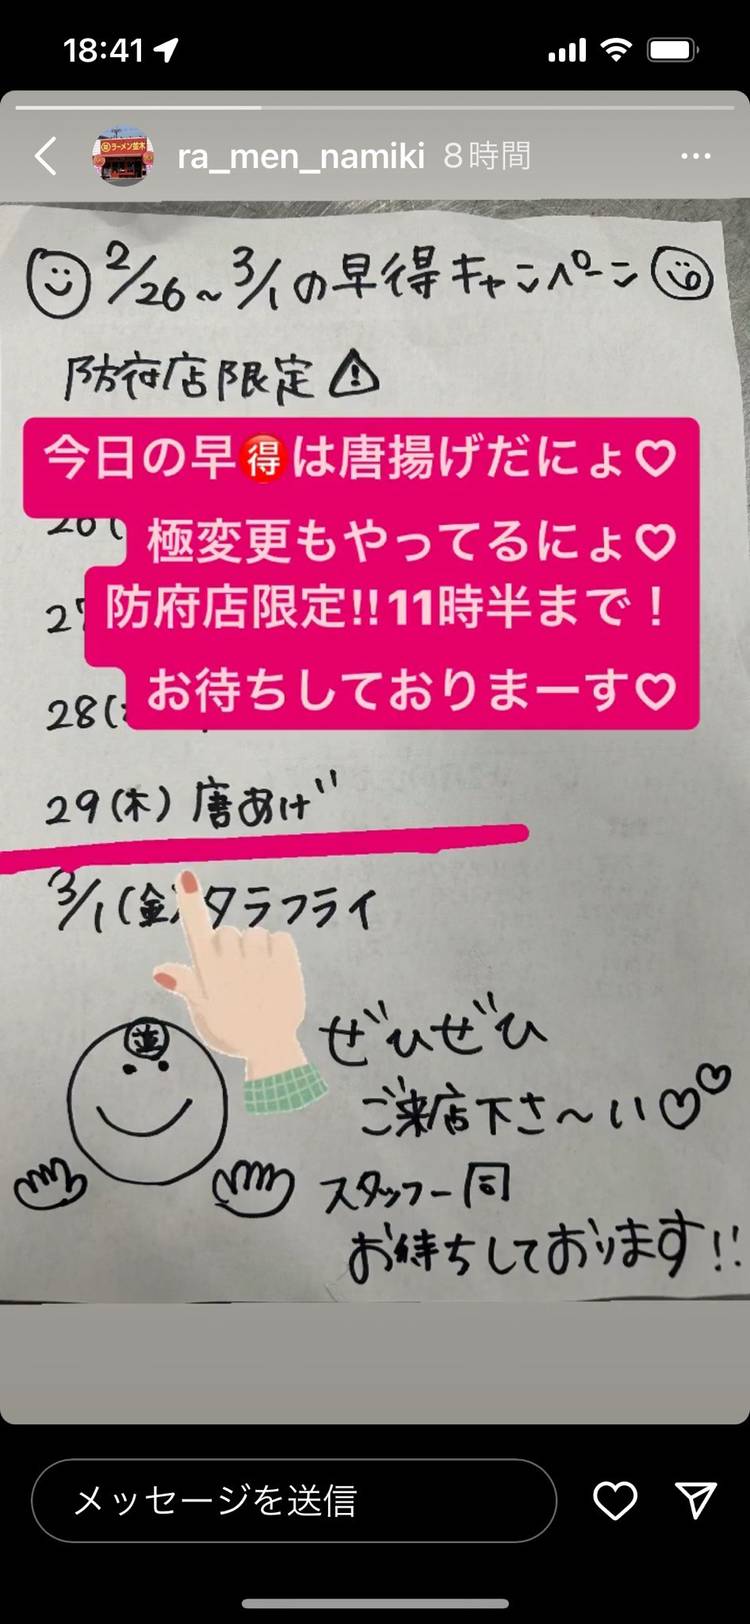 18:41
ra_men_namiki 8時間
2/26~3/1の早得キャンペーン
防府店限定
今日の早㊙得は唐揚げだにょ♡
極変更もやってるにょ♡
防府店限定!!11時半まで！
お待ちしておりまーす♡
26(
27
28(
29(木)唐あげ
3/1(金)タラフライ
ぜひぜひ
ご来店下さ〜い♡♡
スタッフ一同
お待ちしております!!
メッセージを送信